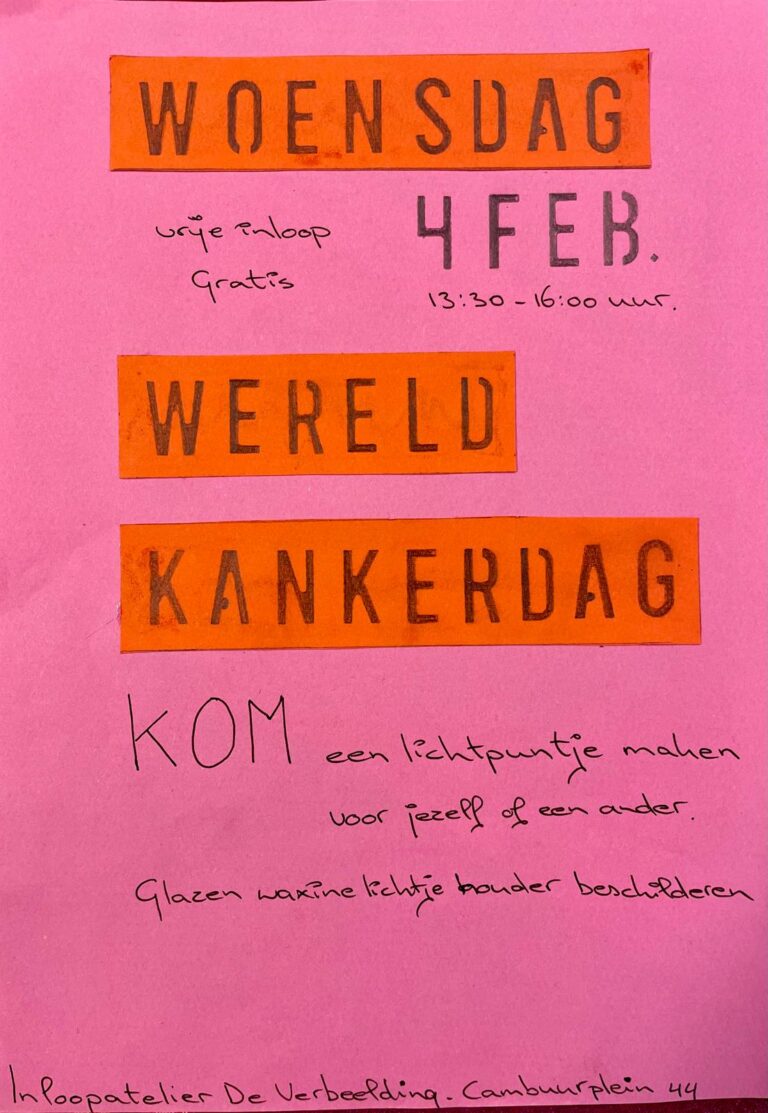 WOENSDAG
vrije inloop 4 FEB.
Gratis 13:30 - 16:00 uur.
WERELD
KANKERDAG
KOM een lichtpuntje maken
voor jezelf of een ander.
Glazen waxine lichtje houder beschilderen
Inloopatelier De Verbeelding. Cambuurplein 44